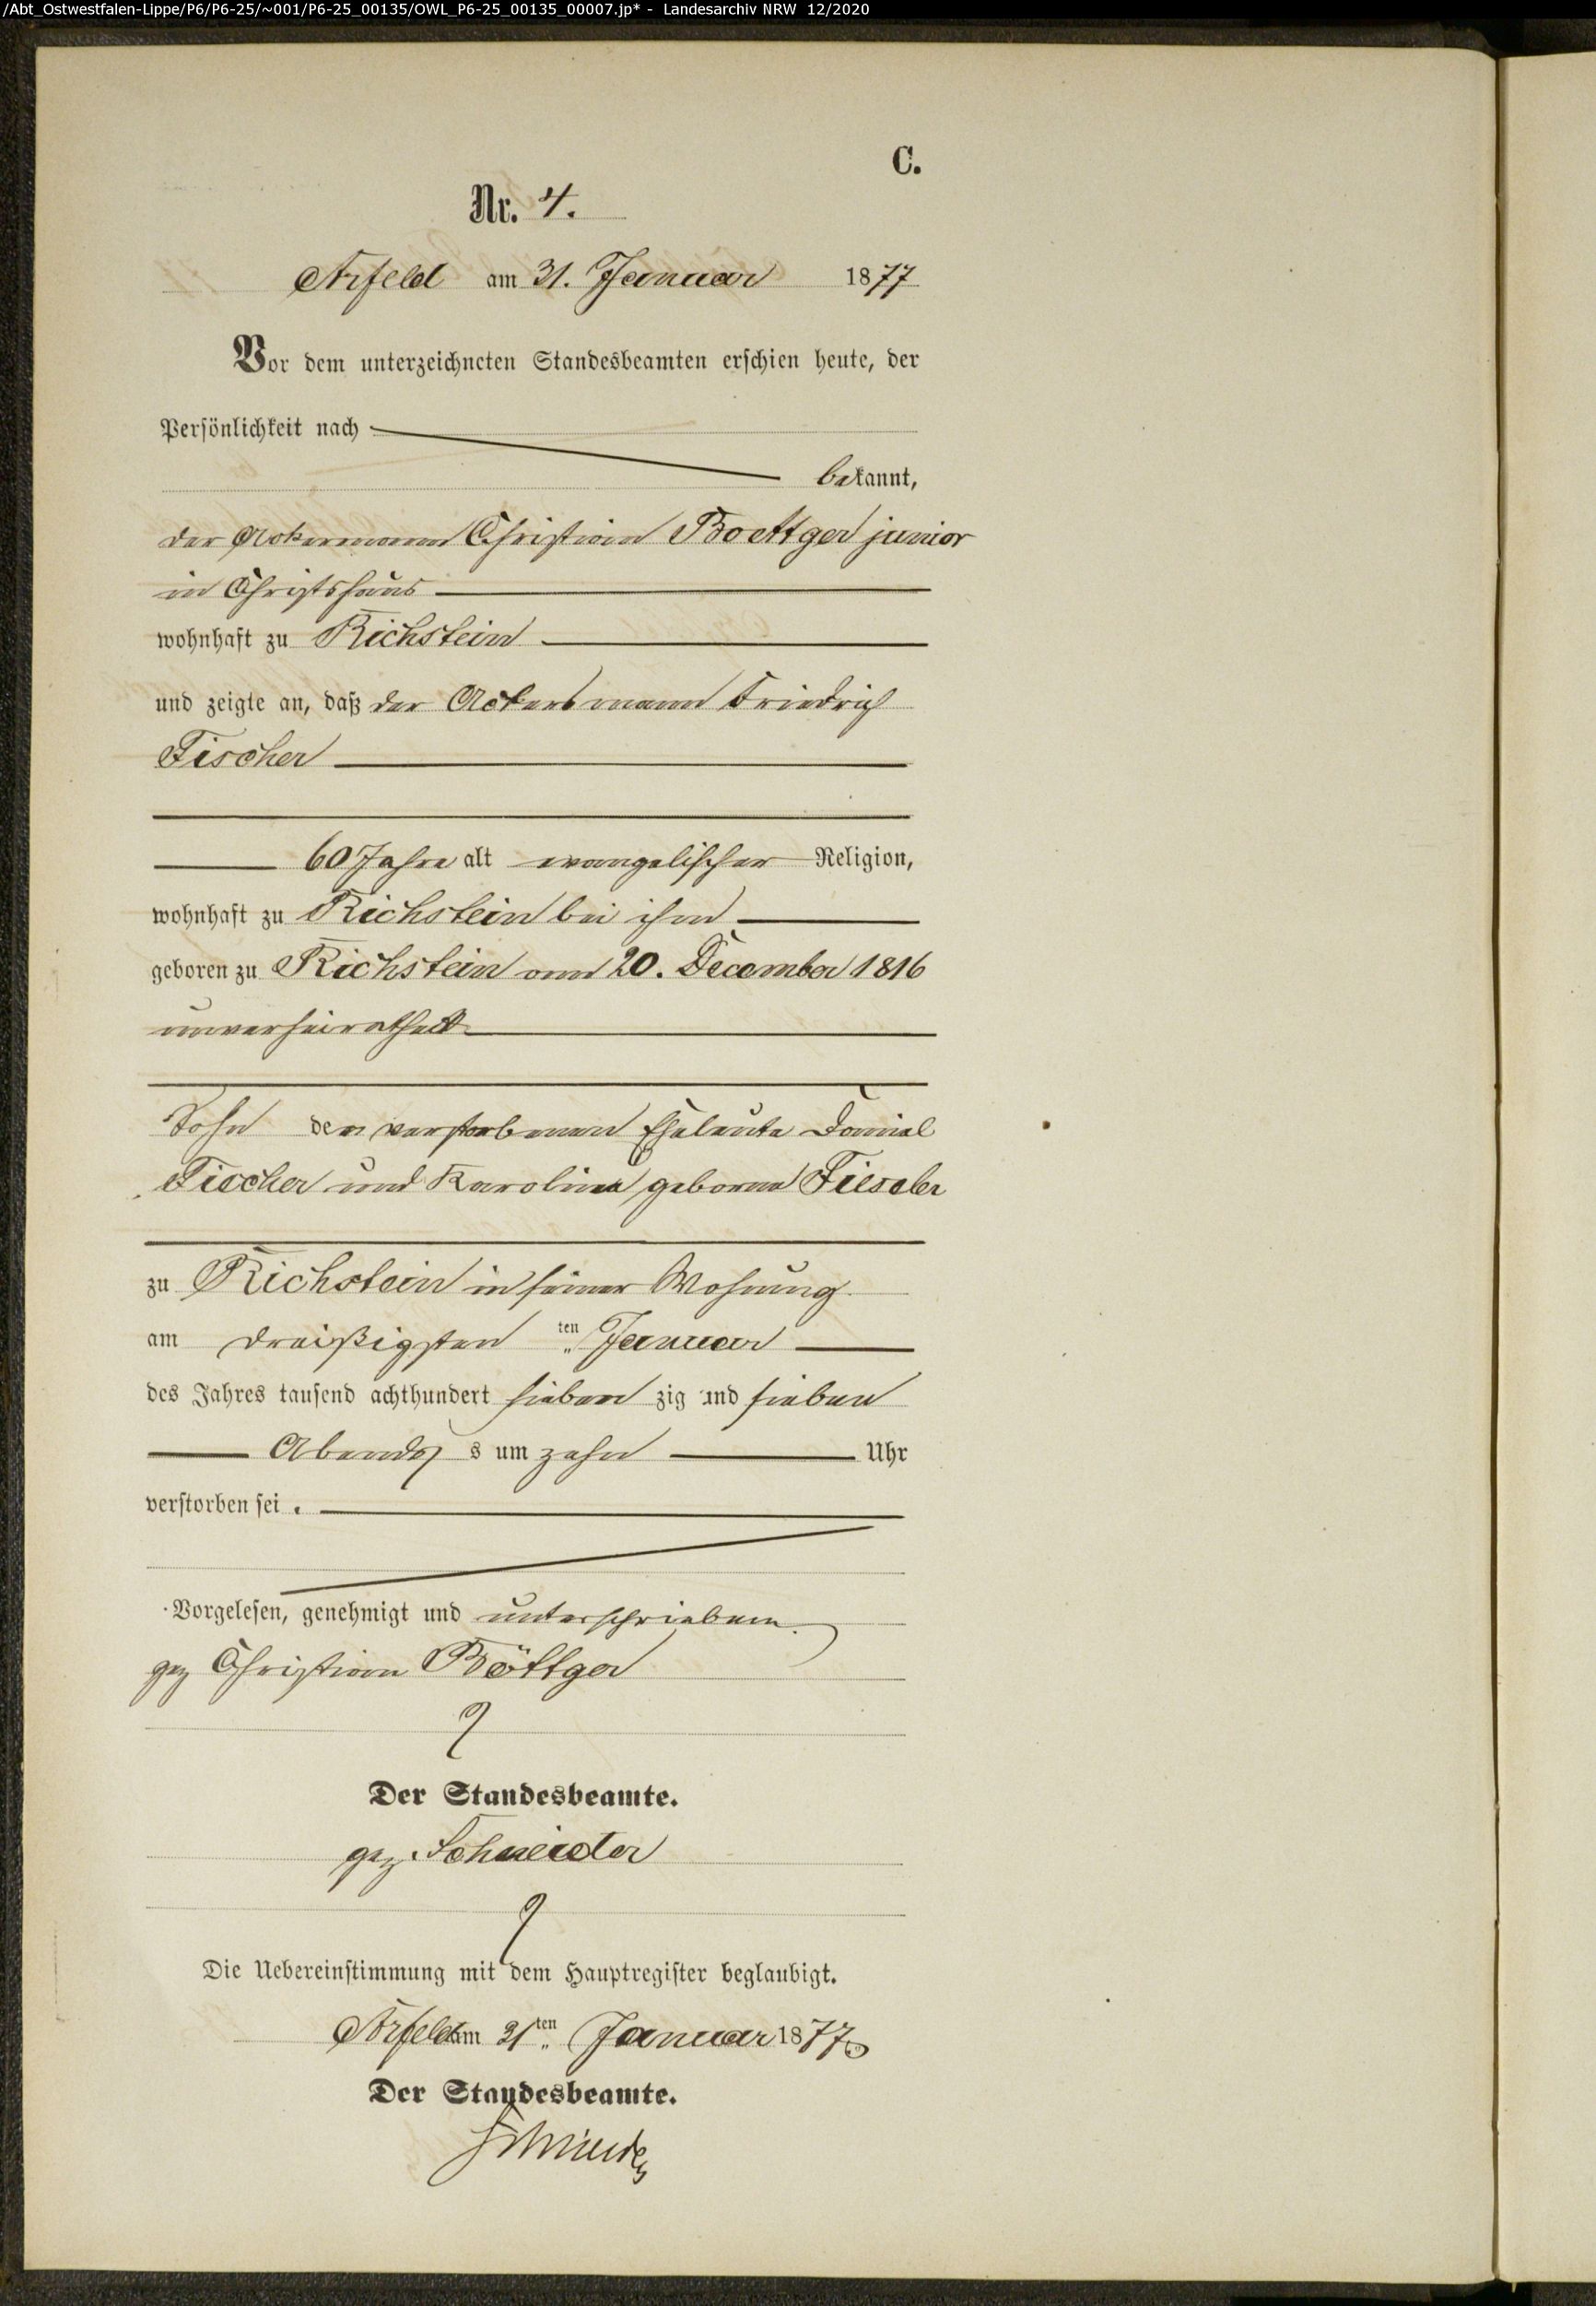 /Abt_Ostwestfalen-Lippe/P6/P6-25/~001/P6-25_00135/OWL_P6-25_00135_00007.jp* - Landesarchiv NRW 12/2020
C.
Nr. 4.
Arfeld am 31. Januar 1877
Vor dem unterzeichneten Standesbeamten erschien heute, der
Persönlichkeit nach
bekannt,
der Ackermann Christian Boettger junior
in Christshaus
wohnhaft zu Richstein
und zeigte an, daß der Ackersmann Friedrich
Fischer
60 Jahre alt evangelischer Religion,
wohnhaft zu Richstein bei ihm
geboren zu Richstein am 20. December 1816
unverheirathet
Sohn der verstorbenen Eheleute Daniel
Fischer und Karoline geborne Fiessler
zu Richstein in seiner Wohnung
am dreißigsten ten Januar
des Jahres tausend achthundert sieben zig und sieben
Abends s um zehn Uhr
verstorben sei.
Vorgelesen, genehmigt und unterschrieben.
gez Christian Böttger
Der Standesbeamte.
gez. Schneider
Die Uebereinstimmung mit dem Hauptregister beglaubigt.
Arfeld am 31ten Januar 1877
Der Standesbeamte.
Schneider